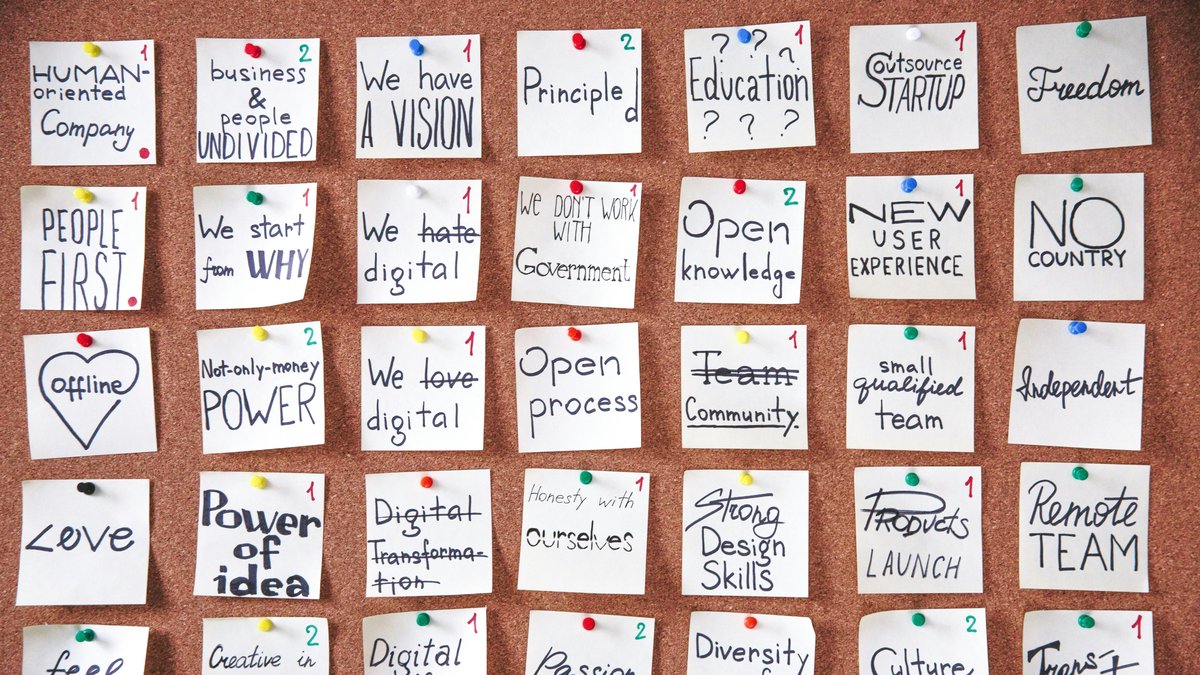 1
HUMAN-
oriented
Company
2
business
&
people
UNDIVIDED
1
We have
A VISION
2
Principled
1
? ? ?
Education
? ? ?
1
Outsource
STARTUP
Freedom
1
PEOPLE
FIRST
1
We start
from WHY
1
We hate
digital
1
We DON'T WORK
WITH
Government
2
Open
knowledge
1
NEW
USER
EXPERIENCE
NO
COUNTRY
offline
2
Not-only-money
POWER
1
We love
digital
Open
process
1
Team
Community
1
small
qualified
team
Independent
Love
1
Power
of
idea
Digital
Transforma-
tion
1
Honesty with
ourselves
Strong
Design
Skills
1
PRODUCTS
LAUNCH
Remote
TEAM
feel
2
Creative in
1
Digital
2
Passion
Diversity
2
Culture
1